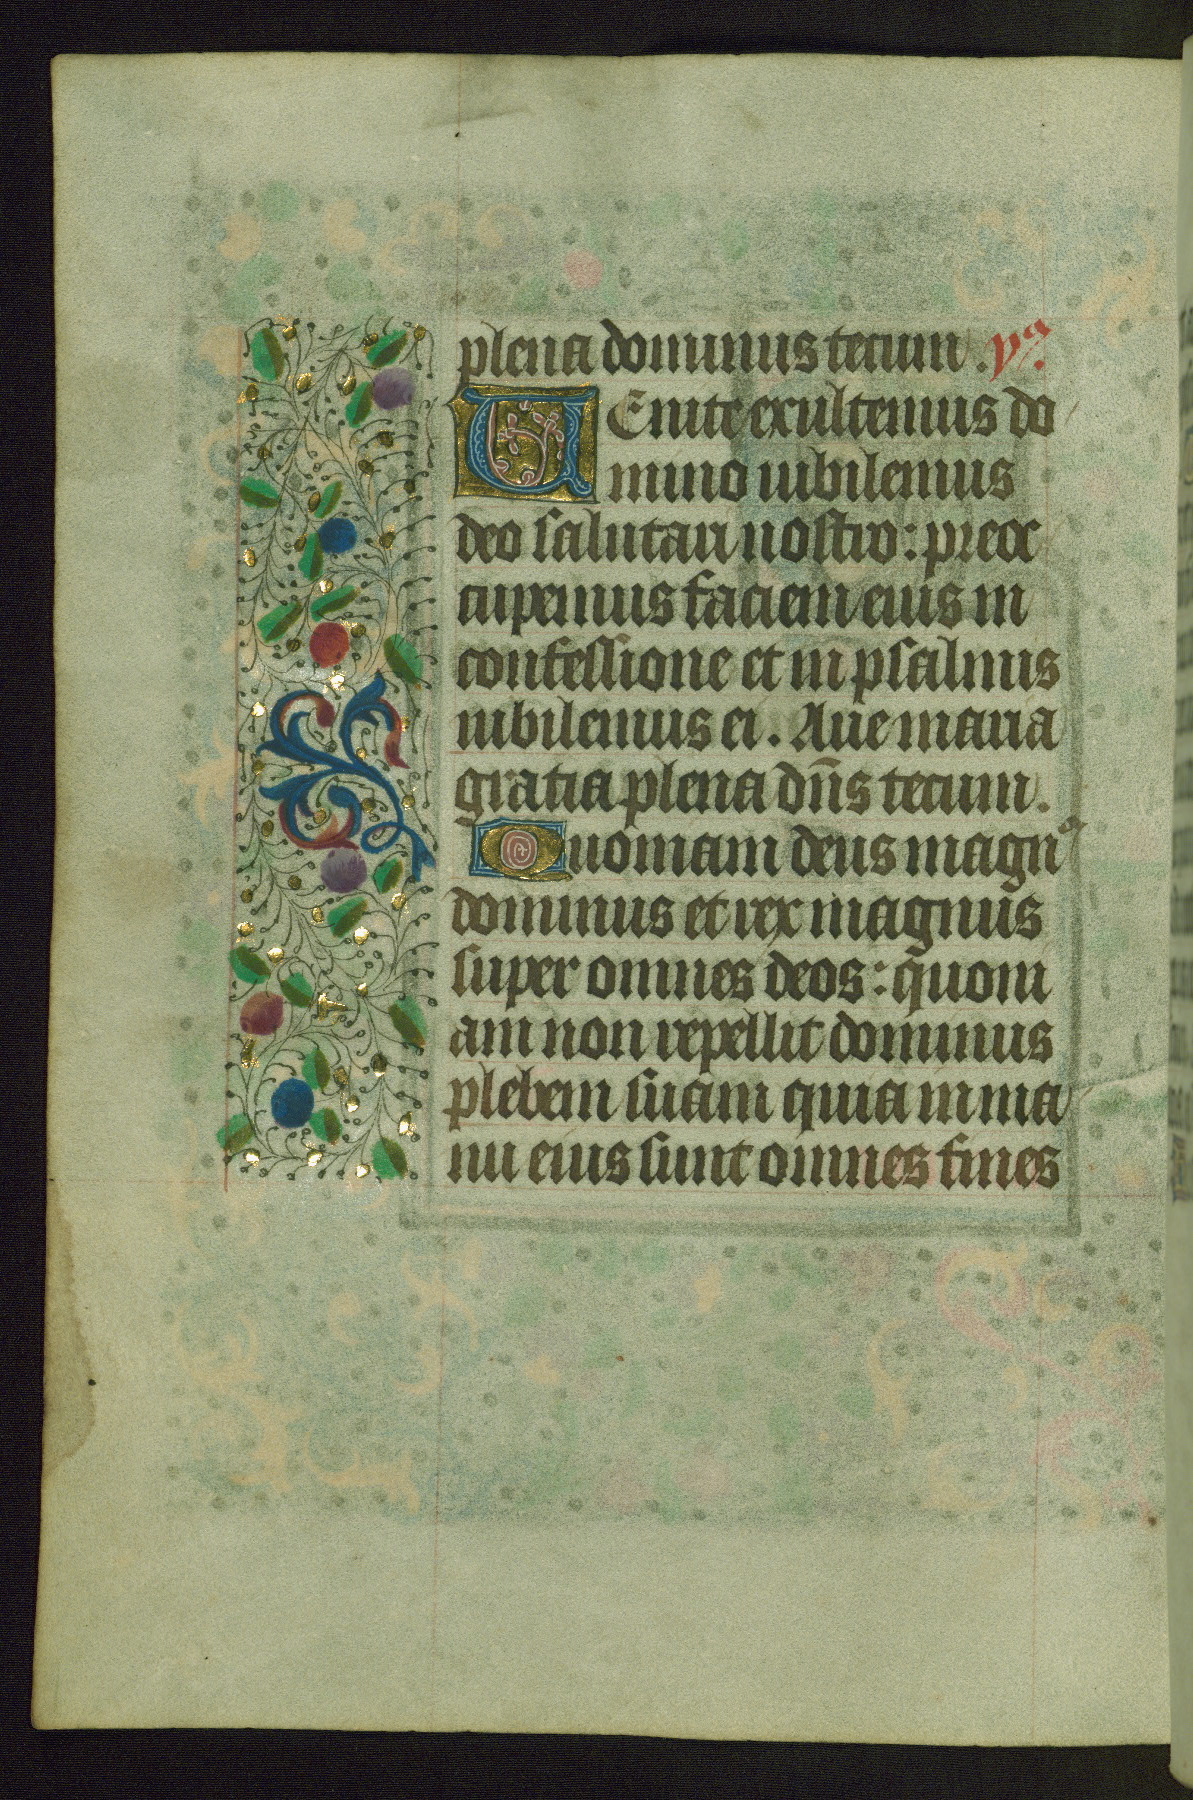 plena dominus tecum. ps
VEnite exultemus do
mino iubilemus
deo salutari nostro: preoc
cupemus faciem eius in
confessione et in psalmis
iubilemus ei. Aue maria
gratia plena dn̄s tecum.
Quoniam deus magnꝰ
dominus et rex magnus
super omnes deos: quoni
am non repellit dominus
plebem suam quia in ma
nu eius sunt omnes fines